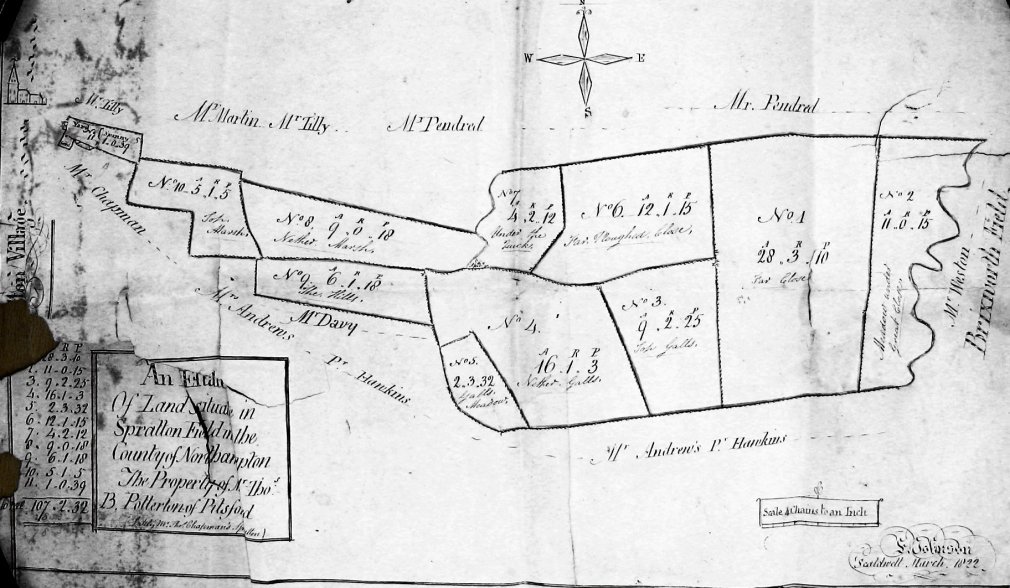 N
W E
S
Mr. Tilly
Mr. Martin Mr. Tilly
Mr. Pendred
Mr. Pendred
Mr. Chapman
1.0.39
No 10 A R P
5.1.5
Top
Marsh
No 8. A R P
9.0.18
Nether Marsh
No 7
A R P
4.2.12
Under the
No 6 A R P
12.1.15
Far Ploughed Close
No 1
A R P
28.3.10
Far Close
No 2
A R P
11.0.15
Meadow under
Great Close
Mr. Weston
Brixworth Field
No 9 A R P
6.1.18
The Hills
Mr. Davy
Mr. Andrews Pr. Hawkins
No 4.
A R P
16.1.3
Nether Galls.
No 3.
A R P
9.2.25
Top Galls.
No 5.
2.3.32
Galls
Meadow
Mr. Andrew's Pr. Hawkins
Village
R P
28.3.10
11-0-15
3. 9.2.25
4. 16.1-3
5. 2.3.32
6. 12.1.15
7. 4.2.12
8. 9.0.18
9. 6.1.18
10. 5.1.5
11. 1.0.39
107.2.32
An
Of Land situate in
Spratton Field in the
County of Northampton
The Property of Mr. Thos.
B. Potterton of Pitsford
Scale 4 Chains to an Inch
E. Johnson
Scaldwell March 1822